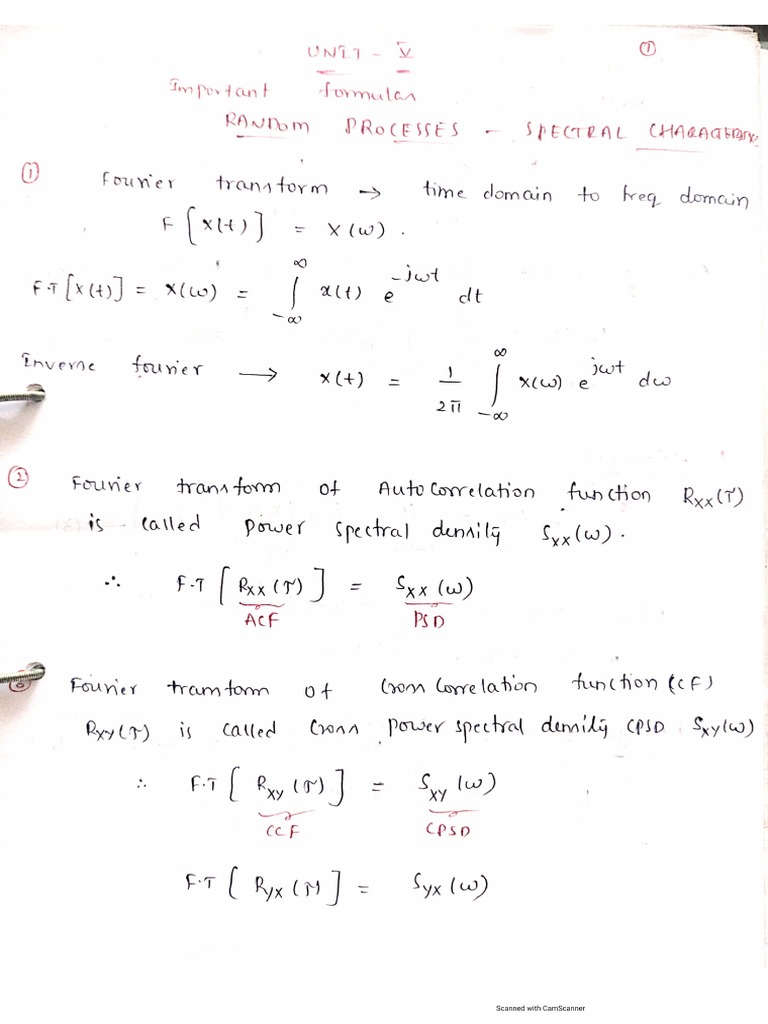 UNIT - V
①
Important formulas
RANDOM PROCESSES - SPECTRAL CHARACTERISTICS
① Fourier transform → time domain to freq domain
F [X(t)] = X(ω).
F.T [X(t)] = X(ω) = ∫_{-∞}^{∞} x(t) e^{-jωt} dt
Inverse fourier → x(t) = 1/2π ∫_{-∞}^{∞} x(ω) e^{jωt} dω
② Fourier transform of Auto Correlation function R_XX(τ)
is called power spectral density S_XX(ω).
∴ F.T [R_XX(τ)] = S_XX(ω)
ACF PSD
Fourier transform of Cross Correlation function (CCF)
R_XY(τ) is called Cross power spectral density CPSD S_XY(ω)
∴ F.T [R_XY(τ)] = S_XY(ω)
CCF CPSD
F.T [R_YX(τ)] = S_YX(ω)
Scanned with CamScanner